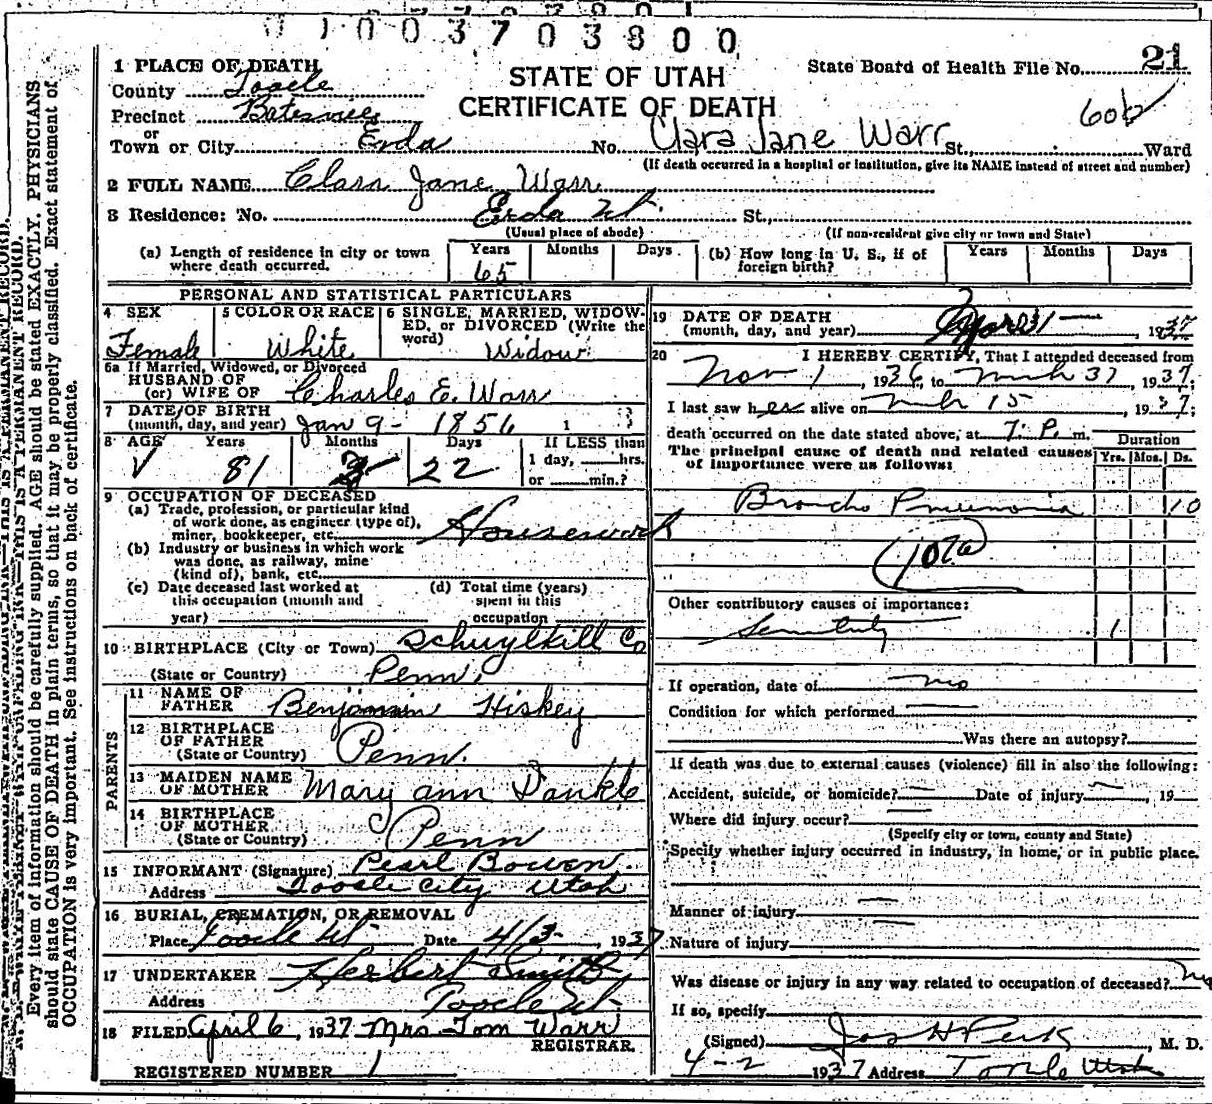 1003703800
21
State Board of Health File No.
STATE OF UTAH
CERTIFICATE OF DEATH
606
1 PLACE OF DEATH
County Tooele
Precinct Batesville
or
Town or City Erda No. Clara Jane Warr St., Ward
(If death occurred in a hospital or institution, give its NAME instead of street and number)
2 FULL NAME Clara Jane Warr
3 Residence: No. Erda Ut. St.,
(Usual place of abode) (If non-resident give city or town and State)
(a) Length of residence in city or town where death occurred. Years 65 Months Days (b) How long in U. S., if of foreign birth? Years Months Days
PERSONAL AND STATISTICAL PARTICULARS
4 SEX Female
5 COLOR OR RACE White
6 SINGLE, MARRIED, WIDOWED, or DIVORCED (Write the word) Widow
6a If Married, Widowed, or Divorced
HUSBAND OF
(or) WIFE OF Charles E. Warr
7 DATE OF BIRTH
(month, day, and year) Jan 9 - 1856 1
8 AGE Years 81 Months 2 Days 22 If LESS than 1 day, hrs. or min.?
9 OCCUPATION OF DECEASED
(a) Trade, profession, or particular kind of work done, as engineer (type of), miner, bookkeeper, etc. Housework
(b) Industry or business in which work was done, as railway, mine (kind of), bank, etc.
(c) Date deceased last worked at this occupation (month and year)
(d) Total time (years) spent in this occupation
10 BIRTHPLACE (City or Town) Schuylkill Co
(State or Country) Penn.
PARENTS
11 NAME OF FATHER Benjamin Hiskey
12 BIRTHPLACE OF FATHER
(State or Country) Penn.
13 MAIDEN NAME OF MOTHER Mary ann
14 BIRTHPLACE OF MOTHER
(State or Country) Penn
15 INFORMANT (Signature) Pearl Bowen
Address Tooele City Utah
16 BURIAL, CREMATION, OR REMOVAL
Place Tooele Ut Date 4/3- , 1937
17 UNDERTAKER Herbert Smith
Address Tooele Ut-
18 FILED April 6, 1937 Mrs Tom Warr
REGISTRAR.
REGISTERED NUMBER 1
19 DATE OF DEATH
(month, day, and year) 31 — 1937
20 I HEREBY CERTIFY, That I attended deceased from
Nov 1, 1936, to 31, 1937;
I last saw her alive on 15, 1937;
death occurred on the date stated above, at 7. P. m.
Duration
Yrs. Mos. Ds.
The principal cause of death and related causes of importance were as follows:
Broncho Pneumonia 10
107a
Other contributory causes of importance:
Senility 1
If operation, date of no
Condition for which performed
Was there an autopsy?
If death was due to external causes (violence) fill in also the following:
Accident, suicide, or homicide? Date of injury , 19
Where did injury occur?
(Specify city or town, county and State)
Specify whether injury occurred in industry, in home, or in public place.
Manner of injury
Nature of injury
Was disease or injury in any way related to occupation of deceased? no
If so, specify
(Signed) Jos H Peck , M. D.
4-2 1937 Address Tooele Utah
Every item of information should be carefully supplied. AGE should be stated EXACTLY. PHYSICIANS
should state CAUSE OF DEATH in plain terms, so that it may be properly classified. Exact statement of
OCCUPATION is very important. See instructions on back of certificate.